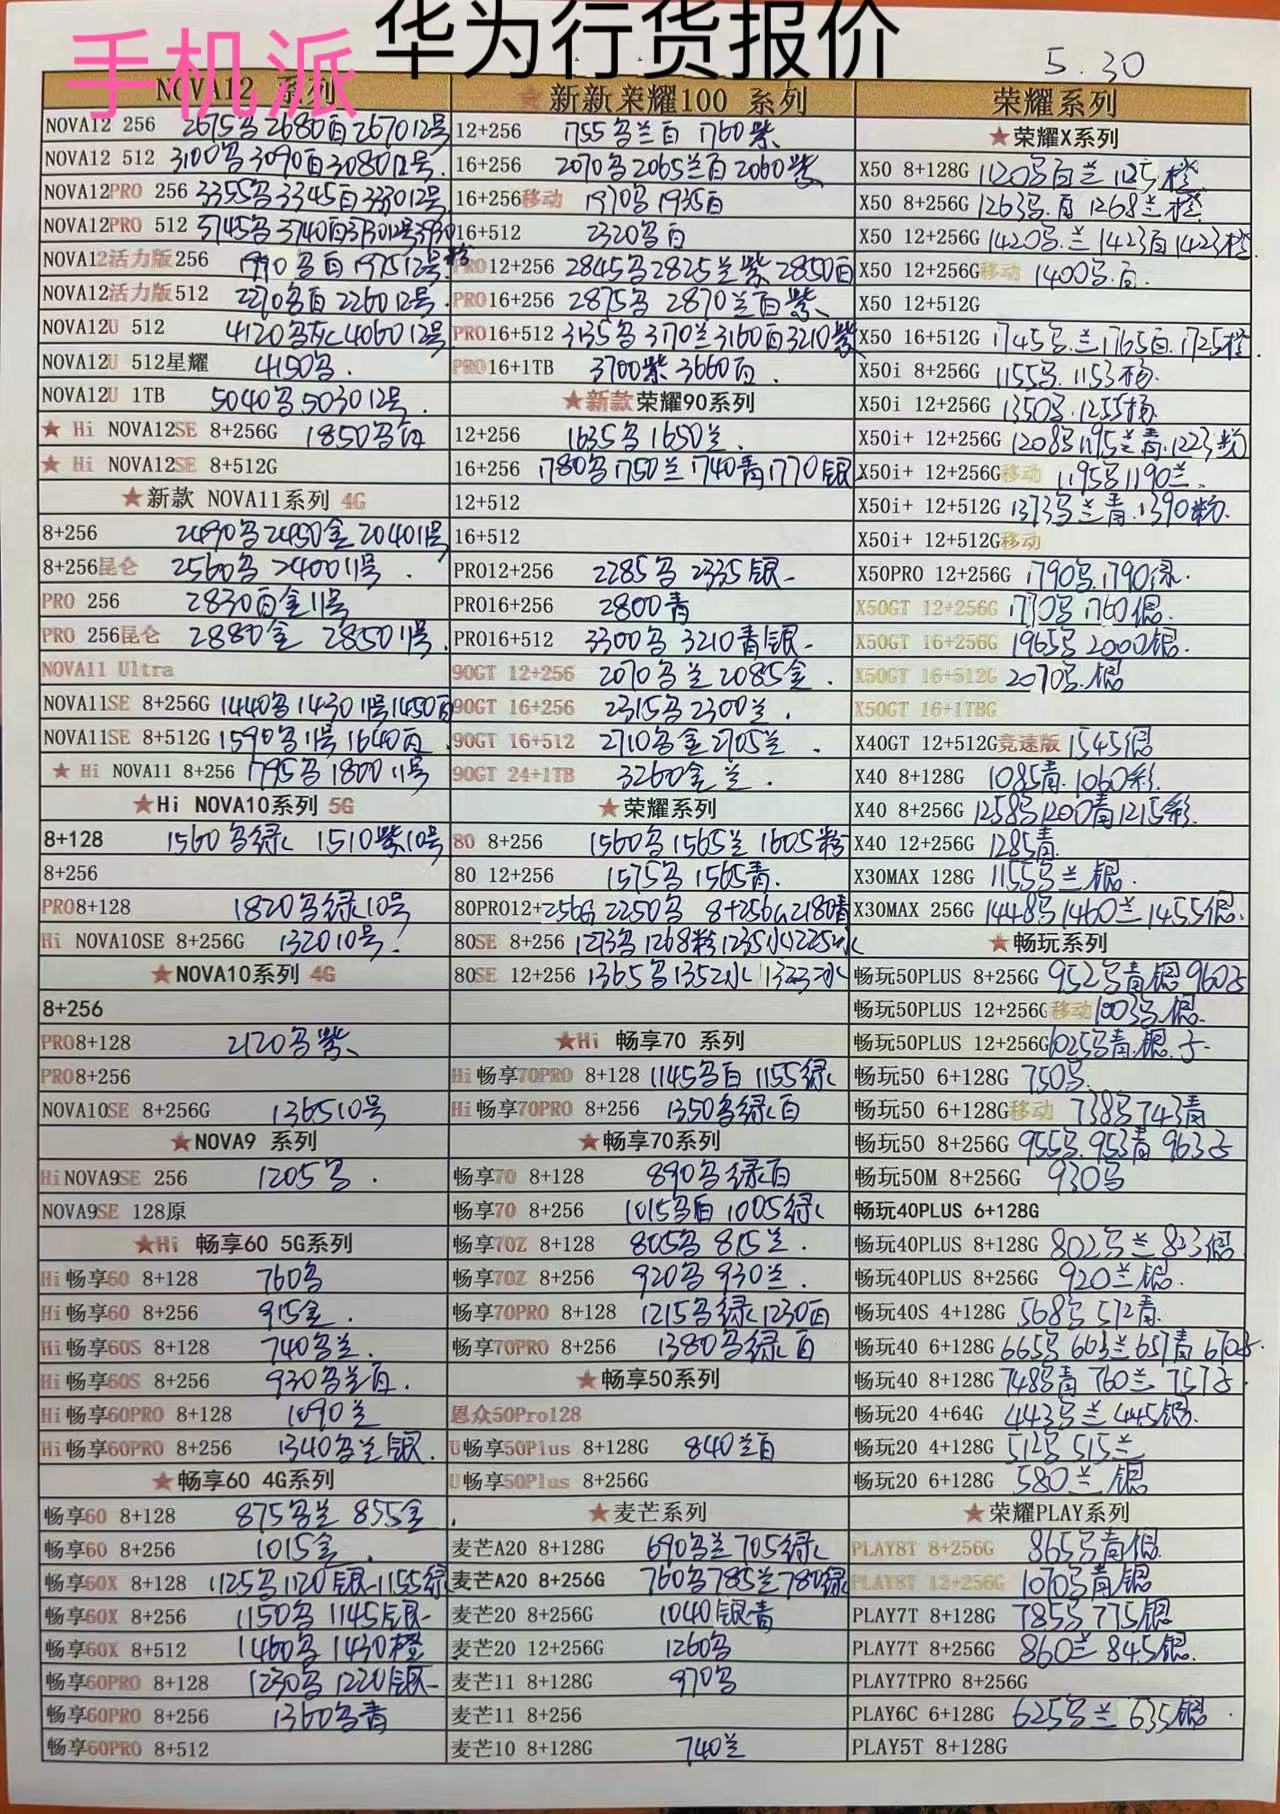 华为行货报价
手机派
5.30
NOVA12 系列
NOVA12 256 2675 2680白 2670 12号
NOVA12 512 3100 3090白 3080 12号
NOVA12PRO 256 3355 3345白 3330 12号
NOVA12PRO 512 3745 3740白
NOVA12活力版256 1990 白 1975 12号
NOVA12活力版512 2270 白 2260 12号
NOVA12U 512 4120 4060 12号
NOVA12U 512星耀 4150
NOVA12U 1TB 5040 5030 12号
★ Hi NOVA12SE 8+256G 1850 白
★ Hi NOVA12SE 8+512G
★新款 NOVA11系列 4G
8+256 2490 2450金 2040 11号
8+256昆仑 2560 2400 11号
PRO 256 2830白金11号
PRO 256昆仑 2880金 2850 11号
NOVA11 Ultra
NOVA11SE 8+256G 1440 1430 11号 1450白
NOVA11SE 8+512G 1590 11号 1640白
★ Hi NOVA11 8+256 1795 1800 11号
★Hi NOVA10系列 5G
8+128 1560 绿 1510紫10号
8+256
PRO8+128 1820 绿10号
Hi NOVA10SE 8+256G 1320 10号
★NOVA10系列 4G
8+256
PRO8+128 2120 紫
PRO8+256
NOVA10SE 8+256G 1365 10号
★NOVA9 系列
Hi NOVA9SE 256 1205
NOVA9SE 128原
★Hi 畅享60 5G系列
Hi 畅享60 8+128 760
Hi 畅享60 8+256 915金
Hi 畅享60S 8+128 740 兰
Hi 畅享60S 8+256 930 兰白
Hi 畅享60PRO 8+128 1090兰
Hi 畅享60PRO 8+256 1340 兰银
★畅享60 4G系列
畅享60 8+128 875 兰 855金
畅享60 8+256 1015金
畅享60X 8+128 1125 1120银 1155绿
畅享60X 8+256 1150 1145银
畅享60X 8+512 1460 1430橙
畅享60PRO 8+128 1230 1220银
畅享60PRO 8+256 1360 青
畅享60PRO 8+512
★新新亲耀100 系列
12+256 1755 兰白 1760紫
16+256 2070 2065兰白 2060紫
16+256移动 1970 1935白
16+512 2320 白
PRO12+256 2845 2825兰紫 2850白
PRO16+256 2875 2870兰白紫
PRO16+512 3135 3170兰 3160白 3210紫
PRO16+1TB 3700紫 3660白
★新款荣耀90系列
12+256 1635 1650兰
16+256 1780 1750兰 1740青 1770银
12+512
16+512
PRO12+256 2285 2335银
PRO16+256 2800青
PRO16+512 3300 3210青银
90GT 12+256 2070 兰 2085金
90GT 16+256 2315 2300兰
90GT 16+512 2710 金 2705兰
90GT 24+1TB 3260金兰
★荣耀系列
80 8+256 1560 1565兰 1605粉
80 12+256 1575 1565青
80PRO12+256G 2250 8+256G 2180青
80SE 8+256 1273 1268粉 1235 1225冰
80SE 12+256 1365 1352 1323冰
★Hi 畅享70 系列
Hi 畅享70PRO 8+128 1145 白 1155绿
Hi 畅享70PRO 8+256 1350 绿白
★畅享70系列
畅享70 8+128 890 绿白
畅享70 8+256 1015 白 1005绿
畅享70Z 8+128 805 815兰
畅享70Z 8+256 920 930兰
畅享70PRO 8+128 1215 绿 1230白
畅享70PRO 8+256 1380 绿白
★畅享50系列
恩众50Pro128
U畅享50Plus 8+128G 840兰白
U畅享50Plus 8+256G
★麦芒系列
麦芒A20 8+128G 690 兰 705绿
麦芒A20 8+256G 760 785兰 780绿
麦芒20 8+256G 1040银青
麦芒20 12+256G 1260
麦芒11 8+128G 970
麦芒11 8+256
麦芒10 8+128G 740兰
荣耀系列
★荣耀X系列
X50 8+128G 1120 白兰 1125橙
X50 8+256G 1263 白 1268兰橙
X50 12+256G 1420 兰 1423白 1423橙
X50 12+256G移动 1400 白
X50 12+512G
X50 16+512G 1745 兰 1765白 1725橙
X50i 8+256G 1155 1153
X50i 12+256G 1350 1255
X50i+ 12+256G 1208 1195兰青 1223粉
X50i+ 12+256G移动 1195 1190兰
X50i+ 12+512G 1373 兰青 1390粉
X50i+ 12+512G移动
X50PRO 12+256G 1790 1790绿
X50GT 12+256G 1770 1760银
X50GT 16+256G 1965 2000银
X50GT 16+512G 2070 银
X50GT 16+1TBG
X40GT 12+512G竞速版 1545银
X40 8+128G 1085青 1060彩
X40 8+256G 1258 1200青 1215彩
X40 12+256G 1285青
X30MAX 128G 1155 兰银
X30MAX 256G 1448 1460兰 1455银
★畅玩系列
畅玩50PLUS 8+256G 952 青银 960
畅玩50PLUS 12+256G移动 1003 银
畅玩50PLUS 12+256G 1025 青银
畅玩50 6+128G 750
畅玩50 6+128G移动 738 743青
畅玩50 8+256G 955 953青 963
畅玩50M 8+256G 930
畅玩40PLUS 6+128G
畅玩40PLUS 8+128G 802 兰 823银
畅玩40PLUS 8+256G 920兰银
畅玩40S 4+128G 568 572青
畅玩40 6+128G 665 603兰 657青
畅玩40 8+128G 748 青 760兰 757
畅玩20 4+64G 443 兰 445银
畅玩20 4+128G 512 515兰
畅玩20 6+128G 580兰银
★荣耀PLAY系列
PLAY8T 8+256G 865 青银
PLAY8T 12+256G 1070 青银
PLAY7T 8+128G 785 775银
PLAY7T 8+256G 860兰 845银
PLAY7TPRO 8+256G
PLAY6C 6+128G 625 兰 635银
PLAY5T 8+128G